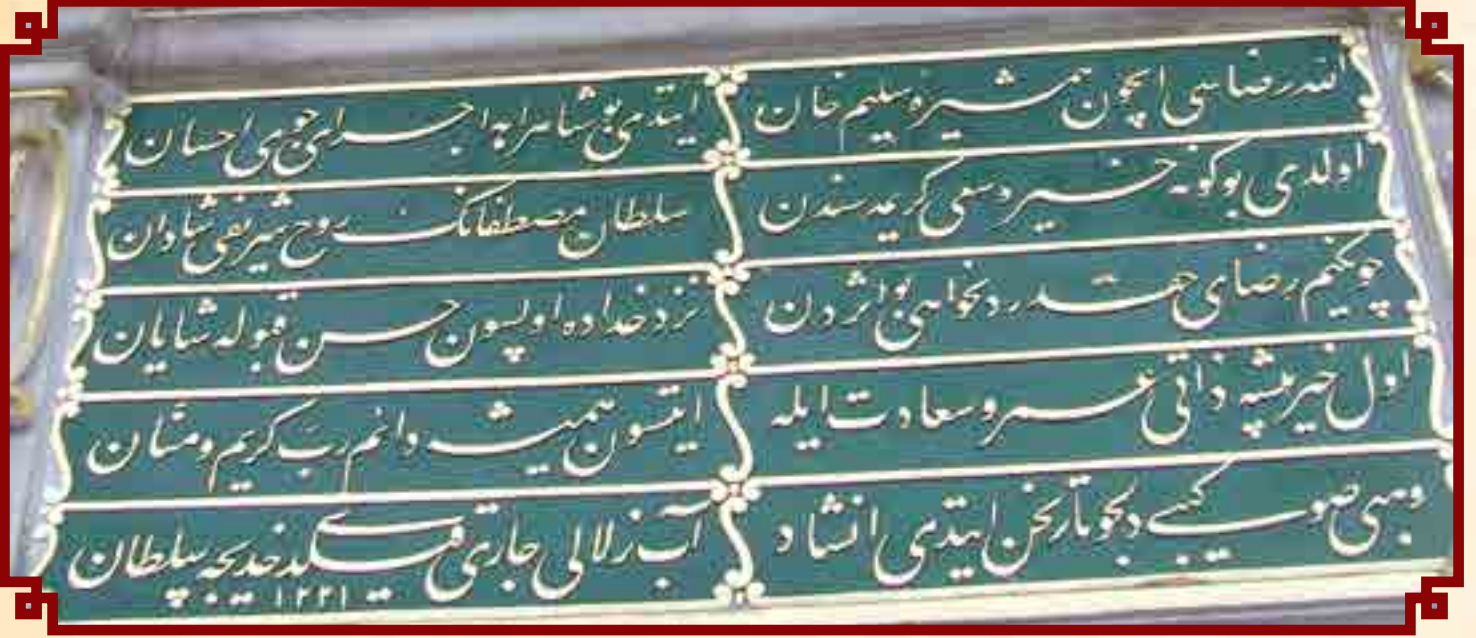 الله رضاسی ایچون همشیرۀ سلیم خان
ایتدی بو شاهراهه اجرای جوی احسان
اولدی بو کونه خیر و سعی کریمه سندن
سلطان مصطفانك روح شریفی شادان
چونکیم رضای حقدر دلخواهی بو اثردن
نزد خداده اولسون حسن قبوله شایان
اول خیرپیشه ذاتی عمر و سعادت ایله
ایتسون همیشه دائم رب کریم و منان
وهبی صو کبی دلجو تاریخن ایتدی انشاد
آب زلالی جاری قیلدی خدیجه سلطان
۱۲۲۱